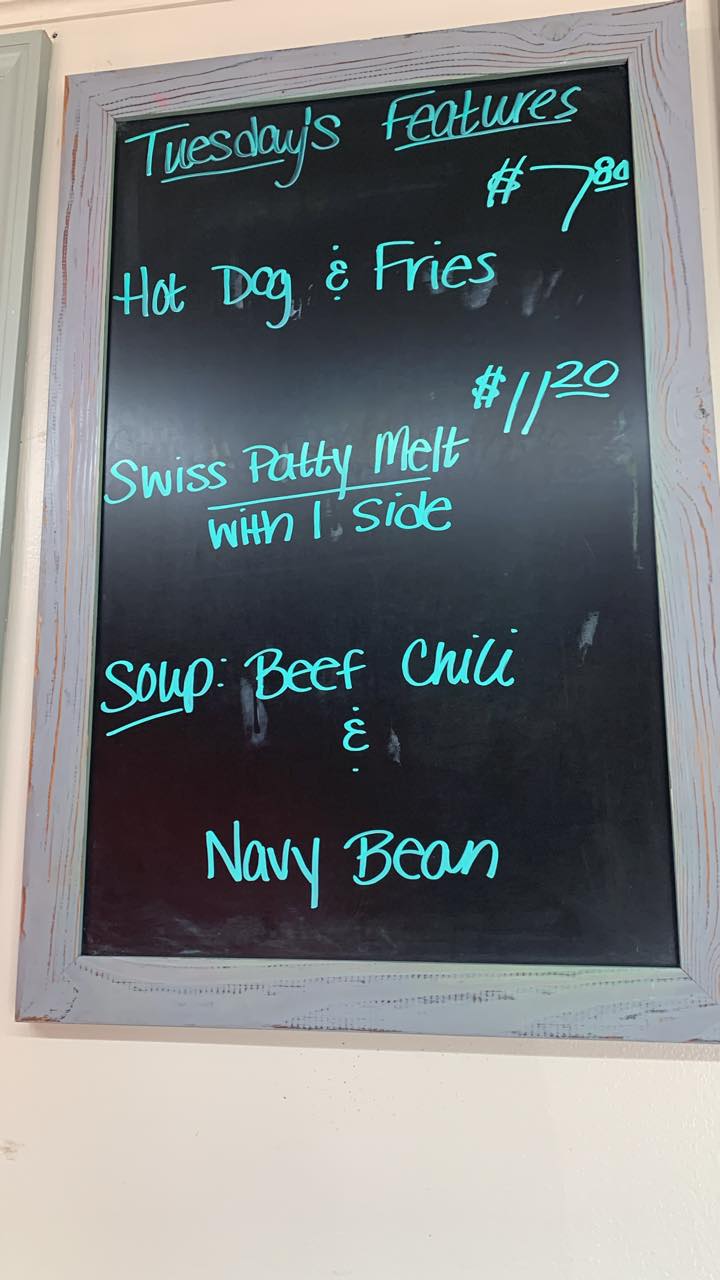 Tuesday's Features
$7.80
Hot Dog & Fries
$11.20
Swiss Patty Melt
with 1 side
Soup: Beef Chili
&
Navy Bean